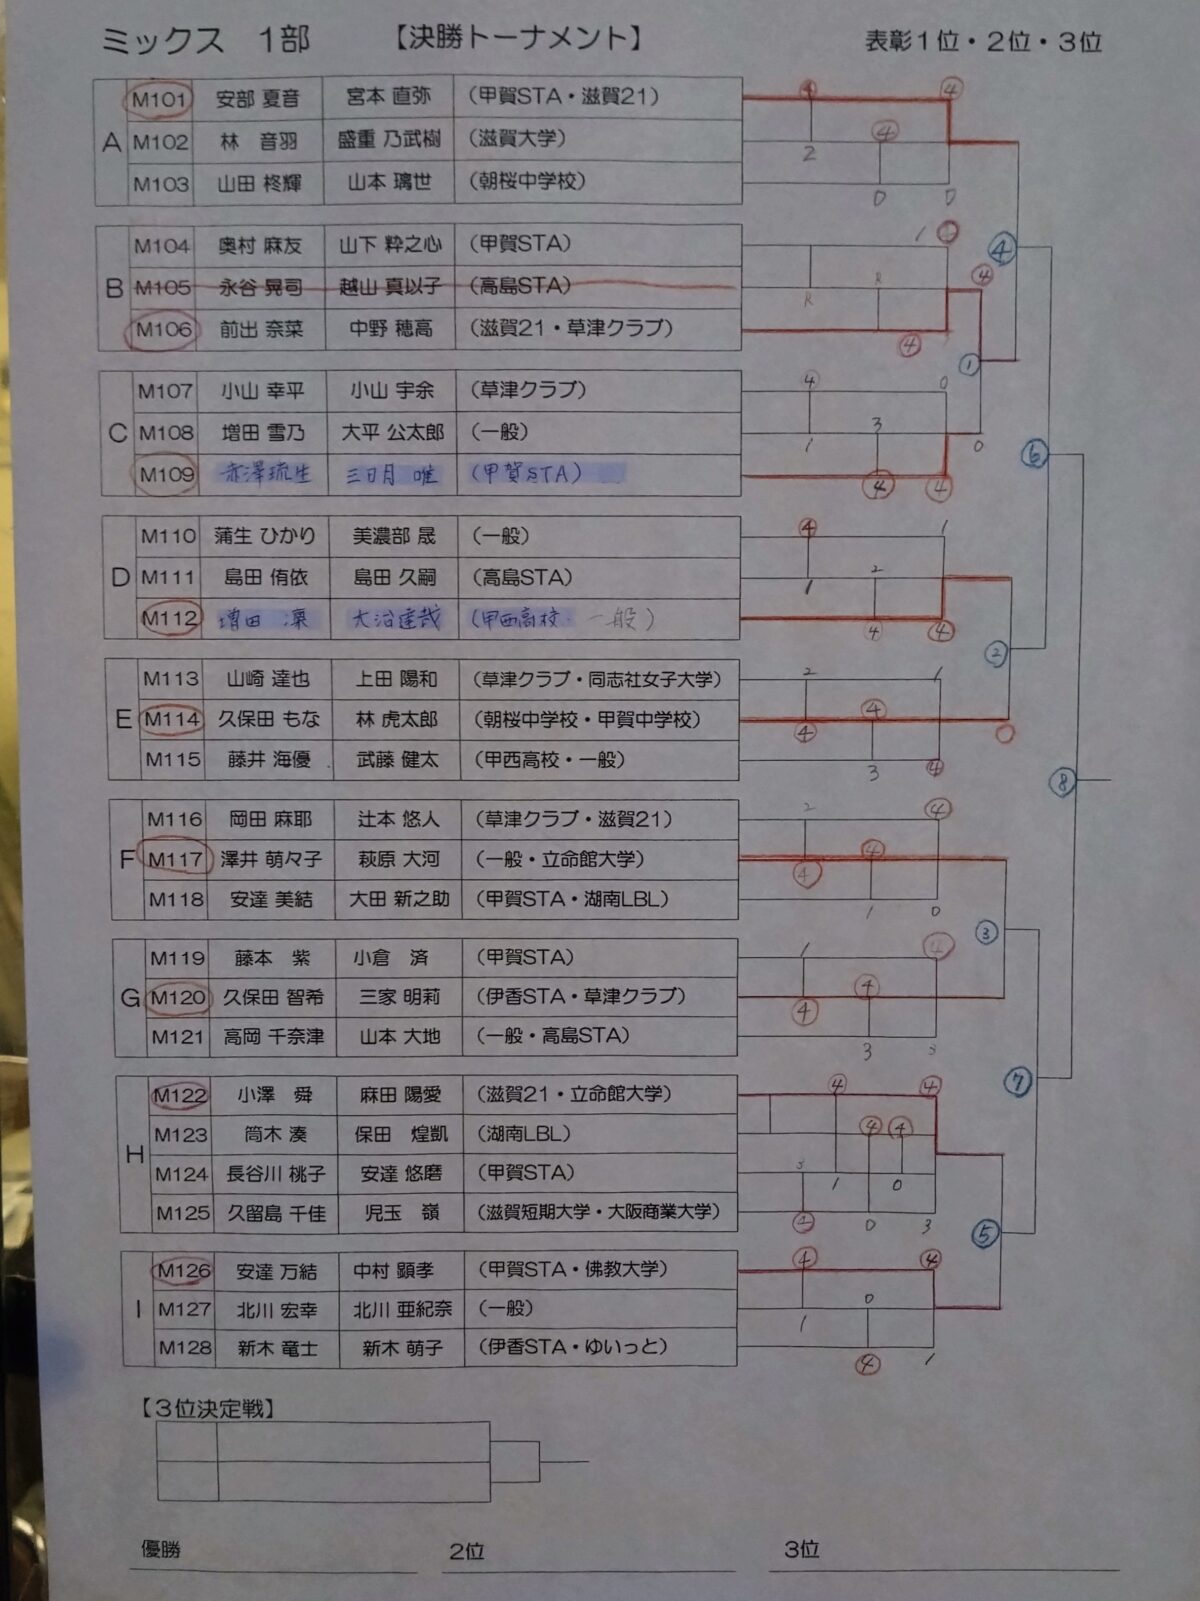 ミックス 1部 【決勝トーナメント】 表彰1位・2位・3位
A
M101 安部 夏音 宮本 直弥 (甲賀STA・滋賀21) ④ ④
M102 林 音羽 盛重 乃武樹 (滋賀大学) 2 ④
M103 山田 柊輝 山本 璃世 (朝桜中学校) 0 0
B
M104 奥村 麻友 山下 粋之心 (甲賀STA) 1
M105 永谷 晃司 越山 真以子 (高島STA) R R
M106 前出 奈菜 中野 穂高 (滋賀21・草津クラブ) ④
④ ④
①
C
M107 小山 幸平 小山 宇余 (草津クラブ) 4 0
M108 増田 雪乃 大平 公太郎 (一般) 1 3
M109 赤澤琉生 三日月 唯 (甲賀STA) ④ ④
0
⑥
D
M110 蒲生 ひかり 美濃部 晟 (一般) ④ 1
M111 島田 侑依 島田 久嗣 (高島STA) 1 2
M112 増田 凜 大治達哉 (甲西高校・一般) ④ ④
②
E
M113 山崎 達也 上田 陽和 (草津クラブ・同志社女子大学) 2 1
M114 久保田 もな 林 虎太郎 (朝桜中学校・甲賀中学校) ④ ④
M115 藤井 海優 武藤 健太 (甲西高校・一般) 3 ④
⑧
F
M116 岡田 麻耶 辻本 悠人 (草津クラブ・滋賀21) 2 ④
M117 澤井 萌々子 萩原 大河 (一般・立命館大学) ④ ④
M118 安達 美結 大田 新之助 (甲賀STA・湖南LBL) 1 0
③
G
M119 藤本 紫 小倉 済 (甲賀STA) 1 ④
M120 久保田 智希 三家 明莉 (伊香STA・草津クラブ) ④ ④
M121 高岡 千奈津 山本 大地 (一般・高島STA) 3 3
⑦
H
M122 小澤 舜 麻田 陽愛 (滋賀21・立命館大学) ④ ④
M123 筒木 湊 保田 煌凱 (湖南LBL) ④ ④
M124 長谷川 桃子 安達 悠磨 (甲賀STA) 3 1 0
M125 久留島 千佳 児玉 嶺 (滋賀短期大学・大阪商業大学) ④ 0 3
⑤
I
M126 安達 万結 中村 顕孝 (甲賀STA・佛教大学) ④ ④
M127 北川 宏幸 北川 亜紀奈 (一般) 1 0
M128 新木 竜士 新木 萌子 (伊香STA・ゆいっと) ④ 1
【3位決定戦】
優勝 2位 3位